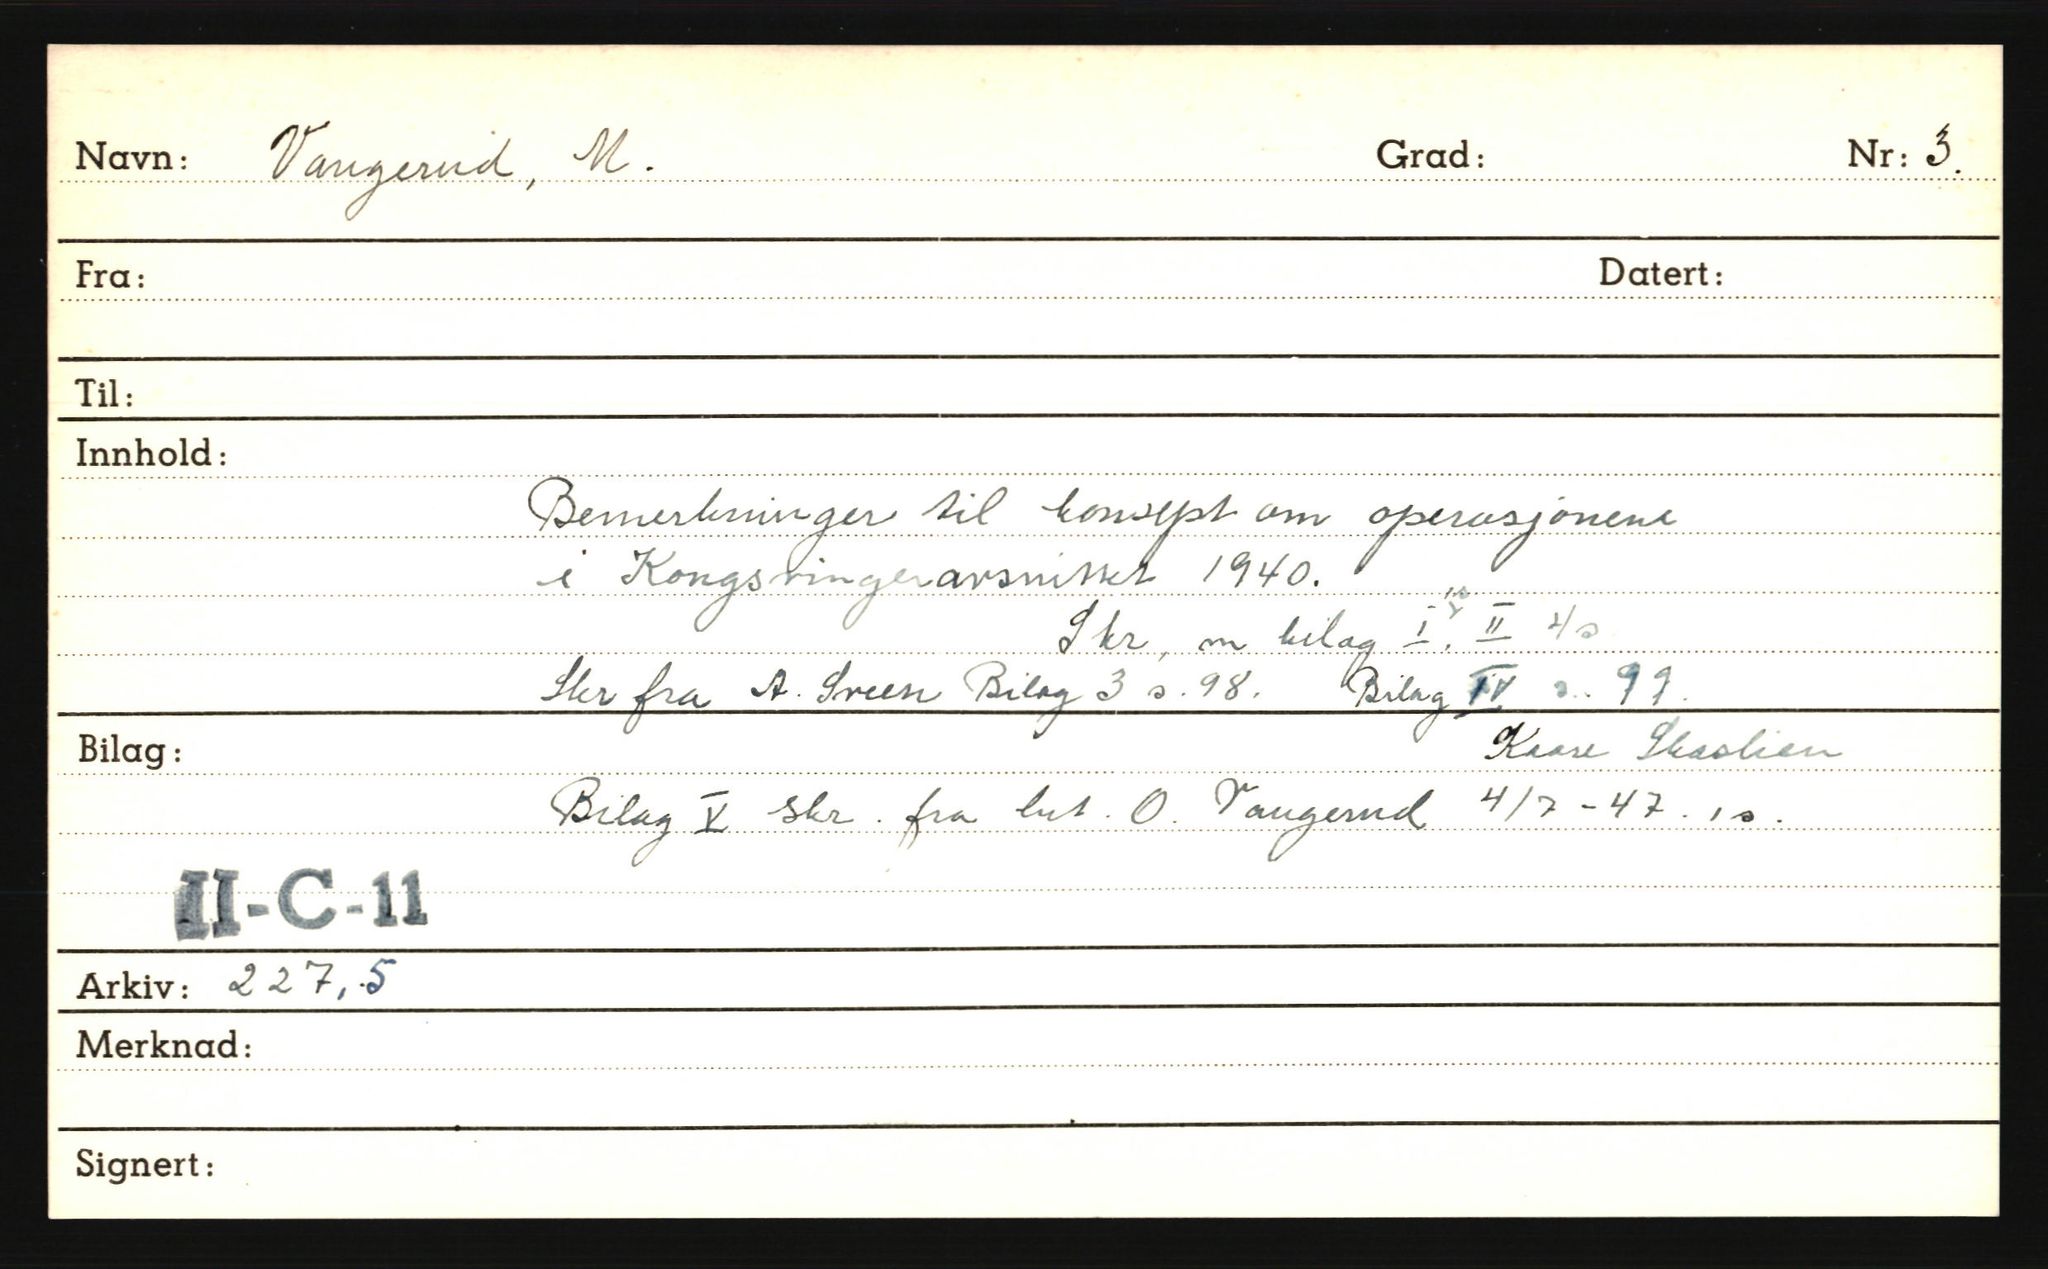 Navn: Vangerud, M. Grad: Nr: 3.
Fra: Datert:
Til:
Innhold:
Bemerkninger til konsept om operasjonene
i Kongsvingeravsnittet 1940.
Skr, m bilag I, II 4 s
Skr fra A. Sveen Bilag 3 s. 98. Bilag IV s. 99.
Bilag: Kaare Skaslien
Bilag V skr. fra lnt. O. Vangerud 4/7-47. 1 s.
II-C-11
Arkiv: 227,.5
Merknad:
Signert: